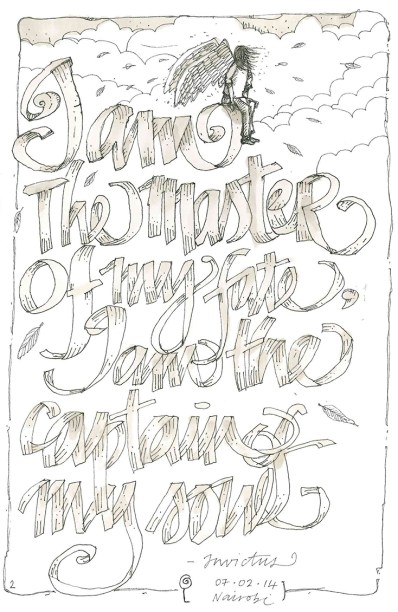 I am
the master
of my fate,
I am the
captain of
my soul
- Invictus
07.02.14
Nairobi
2